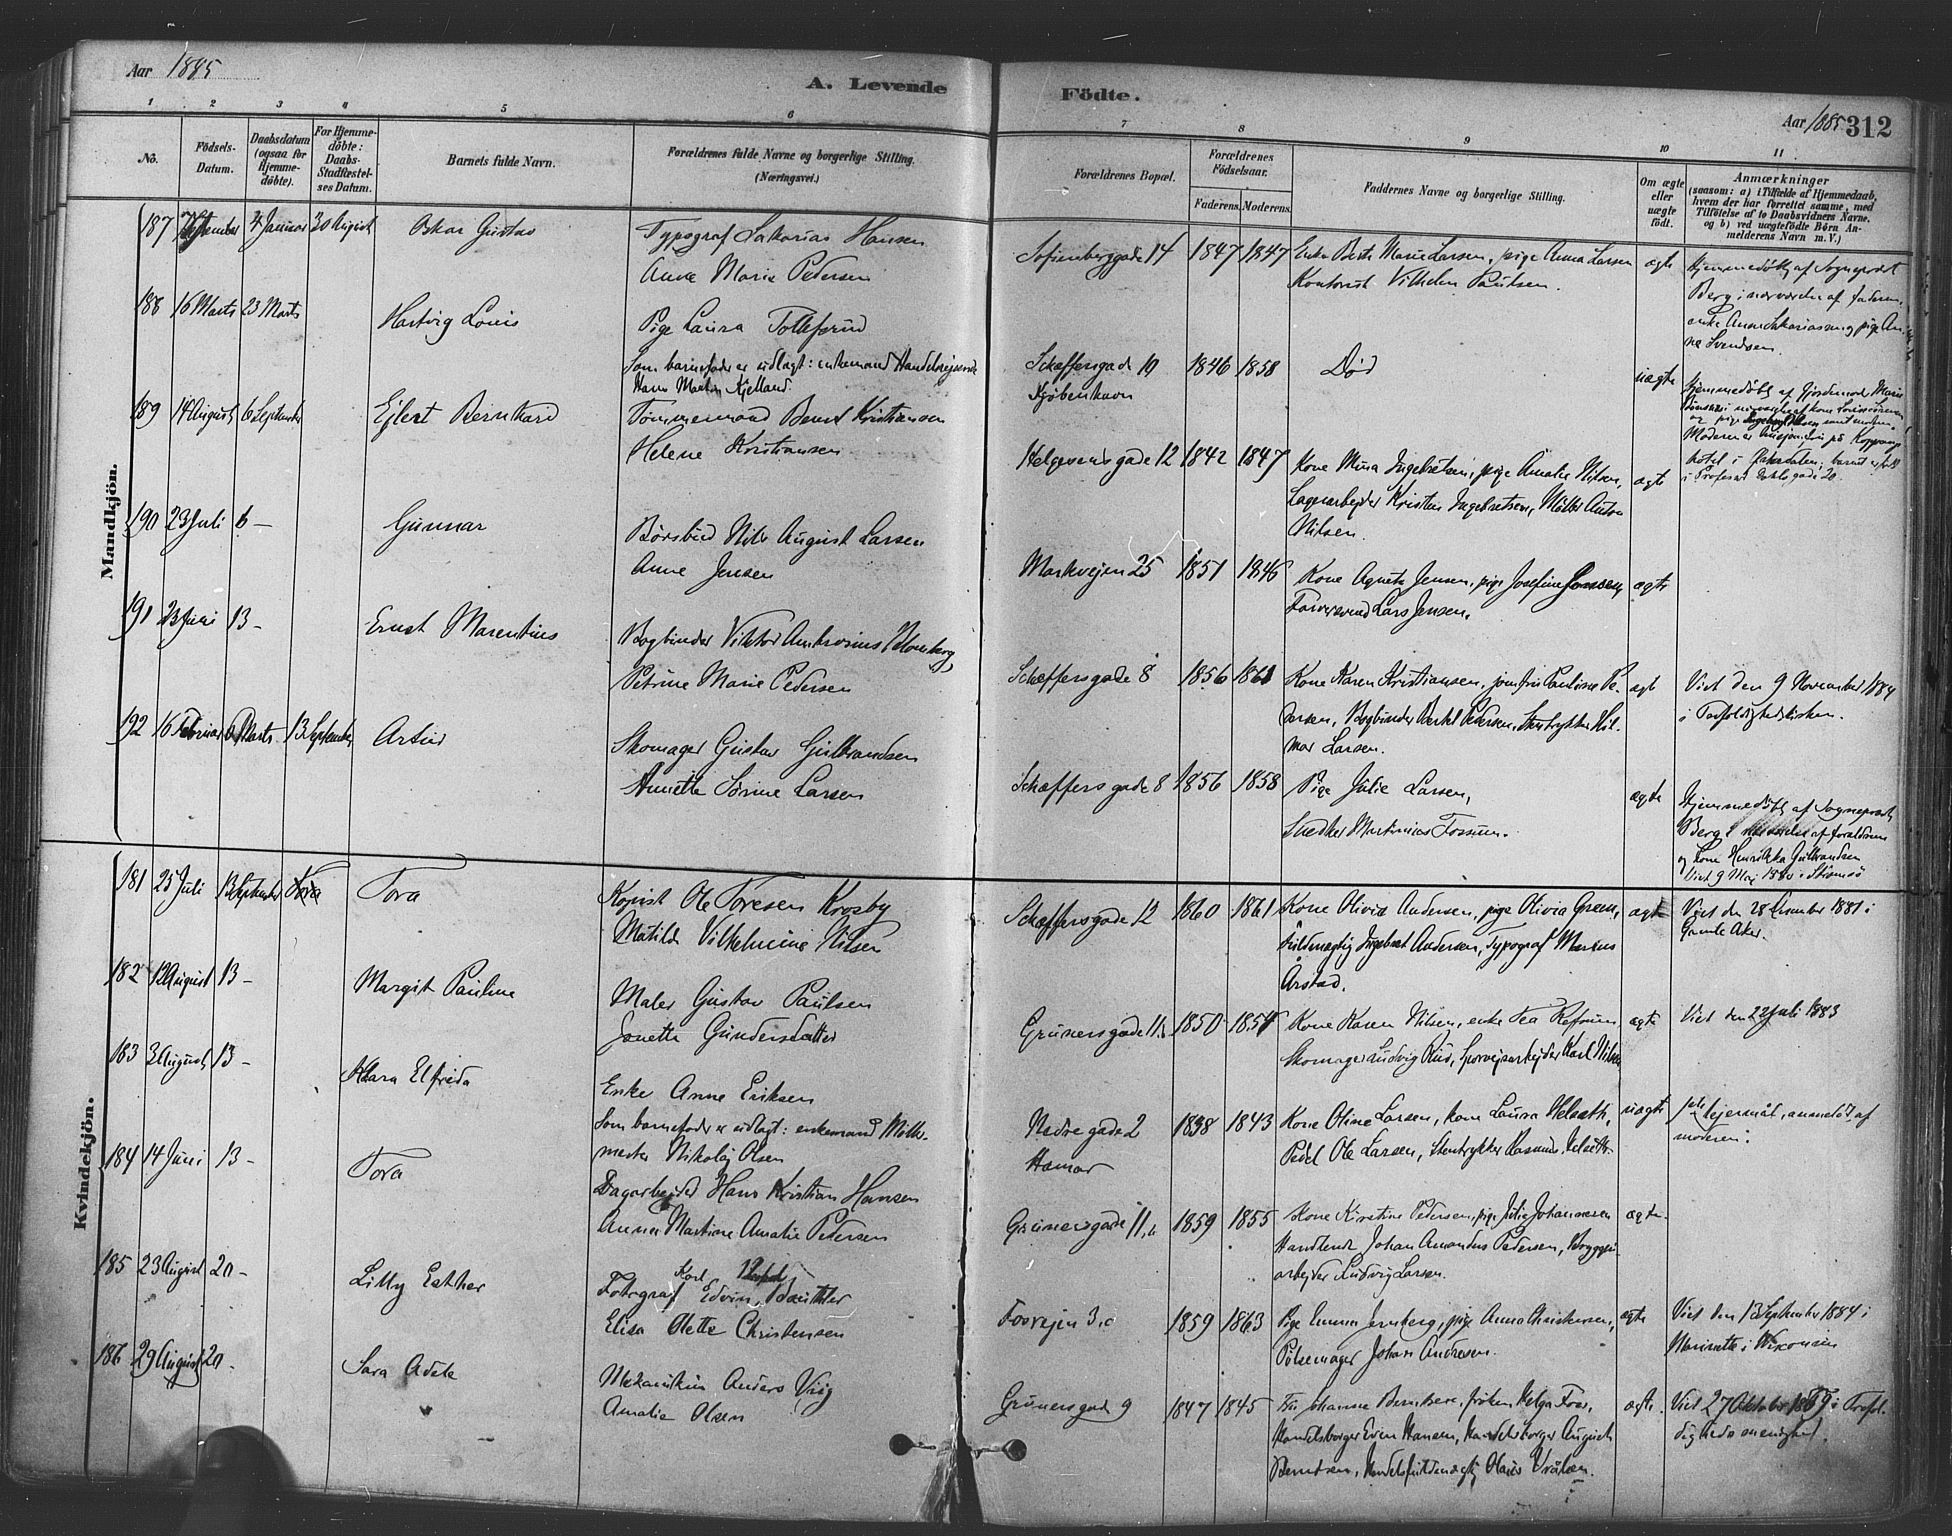 Aar 1885
A. Levende
1 2 3 4 5 6
No. Födsels-Datum. Daabsdatum (ogsaa for Hjemme-döbte). For Hjemme-döbte: Daabs-Stadfæstel-ses Datum. Barnets fulde Navn. Forældrenes fulde Navne og borgerlige Stilling. (Næringsvei.)
Mandkjön.
187 September Januar 30 August Oskar Gustav Typograf Sakarias Hansen
Anna Marie Pedersen
188 16 Marts 23 Marts Hartvig Louis Pige Laura Tollefsrud
Som barnefader er udlagt: enkemand Handelsrejsende
Hans Martin Kjelland.
189 14 August 6 September Ejlert Bernhard Tømmermand Bernt Kristiansen
Helene Kristiansen
190 23 Juli 6 - Gunnar Børsbud Nils August Larsen
Anne Jensen
191 23 Juni 13 - Ernst Marentius Bogbinder Viktor Ambrosius Holmberg,
Petrine Marie Pedersen
192 16 Februar 6 Marts 13 September Artur Skomager Gustav Gulbrandsen
Annette Sørine Larsen
Kvindekjön.
181 25 Juli 13 September Tora Kopist Ole Toresen Krosby
Matilde Vilhelmine Nilsen
182 12 August 13 - Margit Pauline Maler Gustav Paulsen
Janette Gundersdatter
183 3 August 13 - Klara Elfrida Enke Anne Eriksen
Som barnefader er udlagt: enkemand Møller-
mester Nikolaj Olsen
184 14 Juni 13 - Tora Dagarbejder Hans Kristian Hansen
Anna Martine Amalie Pedersen
185 23 August 20 - Lilly Esther Karl
Fotograf Edvin
Elisa Olette Christensen
186 29 August 20 - Sara Adele Mekanikus Anders Viig
Amalie Olsen
Födte.
Aar 1885 312
7 8 9 10 11
Forældrenes Bopæl. Forældrenes Födselsaar. Faderens. Moderens. Faddernes Navne og borgerlige Stilling. Om ægte eller uægte födt. Anmærkninger (saasom: a) i Tilfælde af Hjemmedaab, hvem der har forrettet samme, med Tilföielse af to Daabsvidners Navne, og b) ved uægtefödte Börn An-melderens Navn m. V.)
Sofienberggade 14 1847 1847 Enke Berte Marie Larsen, pige Anna Larsen ægte Hjemmedøbt af Sogneprest
Kontorist Vilhelm Paulsen. Berg i nærværelse af faderen,
enke Anne Sakariassen og pige An-
na Svendsen.
Schæffersgade 10 1846 1858 Død uægte Hjemmedøbt af Gjordemoder Marie
Kjøbenhavn
Helgesensgade 12 1842 1847 Kone Mina Ingebretsen, pige Amalie Nilsen, ægte
Lagerarbejder Kristian Ingebretsen, Møller Anton
Nilsen.
Markvejen 25 1851 1846 Kone Agnete Jensen, pige Josefine Jonsen, ægte
Farversvend Lars Jensen.
Schæffersgade 8 1856 1861 Kone Karen Kristiansen, jomfru Pauline Pe- ægt Viet den 9 November 1884
dersen, Bogbinder Bertel Pedersen, Stentrykker Hil- i Trefoldighedskirken.
mar Larsen.
Schæffersgade 8 1856 1858 Pige Julie Larsen, ægte Hjemmedøbt af Sogneprest
Snedker Martinius Fossum. Berg i nærværelse af forældrene
og kone Henrikka Gulbrandsen
Viet 9 Maj i Strømsø
Schæffersgade 12 1860 1861 Kone Olivia Andersen, pige Olivia Green, ægte Viet den 28 December 1881 i
Fuldmægtig Ingebret Andersen, Typograf Markus Gamle Aker.
Arstad.
Grünersgade 11 1850 1854 Kone Karen Nilsen, enke Tea Refsum ægte Viet den 22 Juli 1883
Skomager Ludvig Rud, Sporvejsarbejder Karl Nilsen
Nedregade 2 1838 1843 Kone Oline Larsen, kone Laura Helseth, uægte 1ste lejermål, anmeldt af
Hamar Pedel Ole Larsen, Stentrykker Rasmus Helseth. moderen.
Grünersgade 11 a 1859 1855 Kone Kirstine Pedersen, pige Julie Johannesen ægte
Handlende Johan Amandus Pedersen, Bryggeri-
arbejder Ludvig Larsen.
Fosvejen 3 c 1859 1863 Pige Emma Jernberg, pige Anna Christensen, ægte Viet den 13 September 1884 i
Pølsemager Johan Andresen. Marinette i Wisconsin
Grünersgade 9 1847 1845 Fru Johanne Berntsen, frøken Helga Foss, ægte Viet 27 Oktober 1869 i Trefol-
Handelsborger Even Hansen, Handelsborger August dighedsmenighed.
Berntsen, Handelsfuldmægtig Olaus Vraalsen.